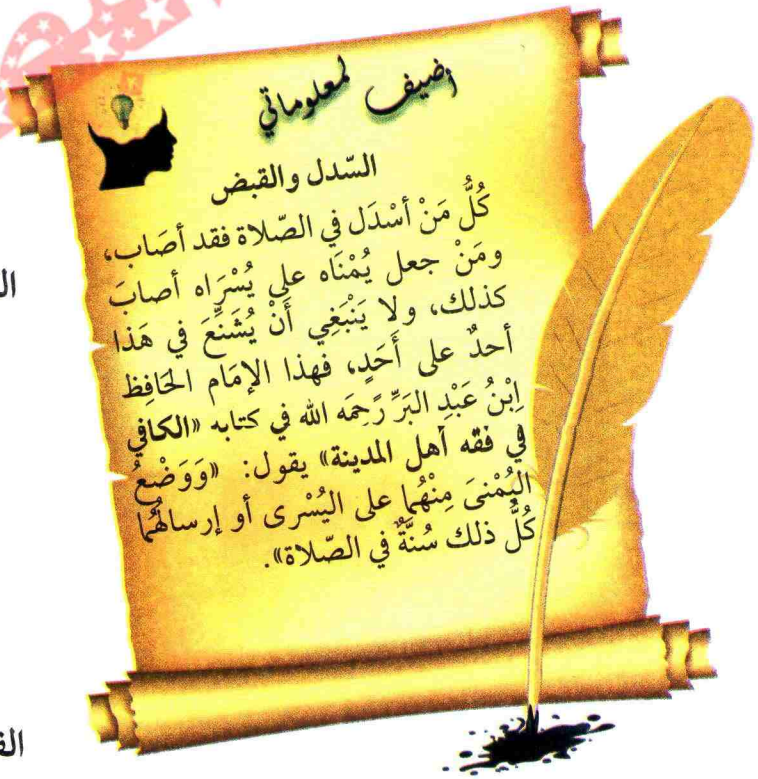 أضيف لمعلوماتي
السّدل والقبض
كُلُّ مَنْ أسْدَل في الصّلاة فقد أصَاب،
ومَنْ جعل يُمْنَاه على يُسْرَاه أصابَ
كذلك، ولا يَنْبَغِي أَنْ يُشَنِّعَ في هَذا
أحدٌ على أَحَدٍ، فهذا الإمَام الحَافِظ
اِبْنُ عَبْدِ البَرِّ رَحِمَه الله في كتابه «الكافي
في فقه أهل المدينة» يقول: «وَوَضْعُ
اليُمْنىَ مِنْهُما على اليُسْرى أو إرسالهُما
كُلُّ ذلك سُنَّةٌ في الصّلاة».